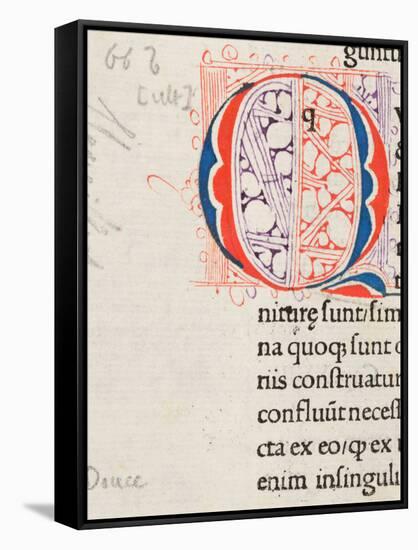 guntu
99 2
[ult]
q
niturę sunt/sim
na quoq; sunt
riis construatur
confluūt necess
cta ex eo/qp ex
enim insingul
Douce